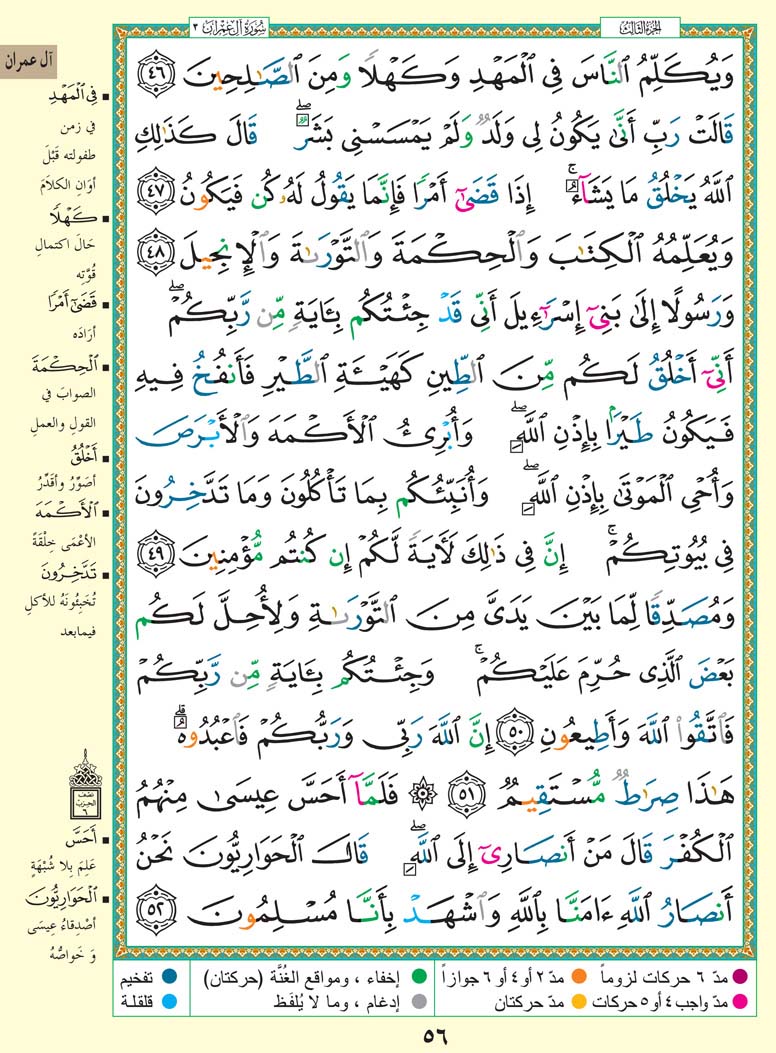 سُورَةُ آلِ عِمْرَان ٣
الجُزْءُ الثَّالِثُ
وَيُكَلِّمُ ٱلنَّاسَ فِى ٱلْمَهْدِ وَكَهْلًا وَمِنَ ٱلصَّٰلِحِينَ ٤٦
قَالَتْ رَبِّ أَنَّىٰ يَكُونُ لِى وَلَدٌ وَلَمْ يَمْسَسْنِى بَشَرٌ ۖ قَالَ كَذَٰلِكِ
ٱللَّهُ يَخْلُقُ مَا يَشَآءُ ۚ إِذَا قَضَىٰٓ أَمْرًا فَإِنَّمَا يَقُولُ لَهُۥ كُن فَيَكُونُ ٤٧
وَيُعَلِّمُهُ ٱلْكِتَٰبَ وَٱلْحِكْمَةَ وَٱلتَّوْرَىٰةَ وَٱلْإِنجِيلَ ٤٨
وَرَسُولًا إِلَىٰ بَنِىٓ إِسْرَٰٓءِيلَ أَنِّى قَدْ جِئْتُكُم بِـَٔايَةٍ مِّن رَّبِّكُمْ ۖ
أَنِّىٓ أَخْلُقُ لَكُم مِّنَ ٱلطِّينِ كَهَيْـَٔةِ ٱلطَّيْرِ فَأَنفُخُ فِيهِ
فَيَكُونُ طَيْرًۢا بِإِذْنِ ٱللَّهِ ۖ وَأُبْرِئُ ٱلْأَكْمَهَ وَٱلْأَبْرَصَ
وَأُحْىِ ٱلْمَوْتَىٰ بِإِذْنِ ٱللَّهِ ۖ وَأُنَبِّئُكُم بِمَا تَأْكُلُونَ وَمَا تَدَّخِرُونَ
فِى بُيُوتِكُمْ ۚ إِنَّ فِى ذَٰلِكَ لَـَٔايَةً لَّكُمْ إِن كُنتُم مُّؤْمِنِينَ ٤٩
وَمُصَدِّقًا لِّمَا بَيْنَ يَدَىَّ مِنَ ٱلتَّوْرَىٰةِ وَلِأُحِلَّ لَكُم
بَعْضَ ٱلَّذِى حُرِّمَ عَلَيْكُمْ ۚ وَجِئْتُكُم بِـَٔايَةٍ مِّن رَّبِّكُمْ
فَٱتَّقُوا۟ ٱللَّهَ وَأَطِيعُونِ ٥٠ إِنَّ ٱللَّهَ رَبِّى وَرَبُّكُمْ فَٱعْبُدُوهُ ۗ
هَٰذَا صِرَٰطٌ مُّسْتَقِيمٌ ٥١ ۞ فَلَمَّآ أَحَسَّ عِيسَىٰ مِنْهُمُ
ٱلْكُفْرَ قَالَ مَنْ أَنصَارِىٓ إِلَى ٱللَّهِ ۖ قَالَ ٱلْحَوَارِيُّونَ نَحْنُ
أَنصَارُ ٱللَّهِ ءَامَنَّا بِٱللَّهِ وَٱشْهَدْ بِأَنَّا مُسْلِمُونَ ٥٢
آل عمران
فِى ٱلْمَهْدِ
في زمن
طفولته قَبْلَ
أوَانِ الكلامَ
كَهْلًا
حَالَ اكتمالِ
قُوَّتِه
قَضَىٰٓ أَمْرًا
أرَادَه
ٱلْحِكْمَةَ
الصوابَ في
القولِ والعملِ
أَخْلُقُ
أصَوِّرُ وأقَدِّرُ
ٱلْأَكْمَهَ
الأعْمَى خِلْقَةً
تَدَّخِرُونَ
تُخَبِئُونَهُ للأكلِ
فيمابعد
نصف
الحزب
٦
أَحَسَّ
عَلِمَ بِلا شُبْهَةٍ
ٱلْحَوَارِيُّونَ
أصْدِقاءُ عِيسَى
وَ خَواصُّهُ
مدّ ٦ حركات لزوماً
مدّ ٢ أو ٤ أو ٦ جوازاً
إخفاء ، ومواقع الغُنَّة (حركتان)
تفخيم
مدّ واجب ٤ أو ٥ حركات
مدّ حركتان
إدغام ، وما لا يُلفَظ
قلقلة
٥٦